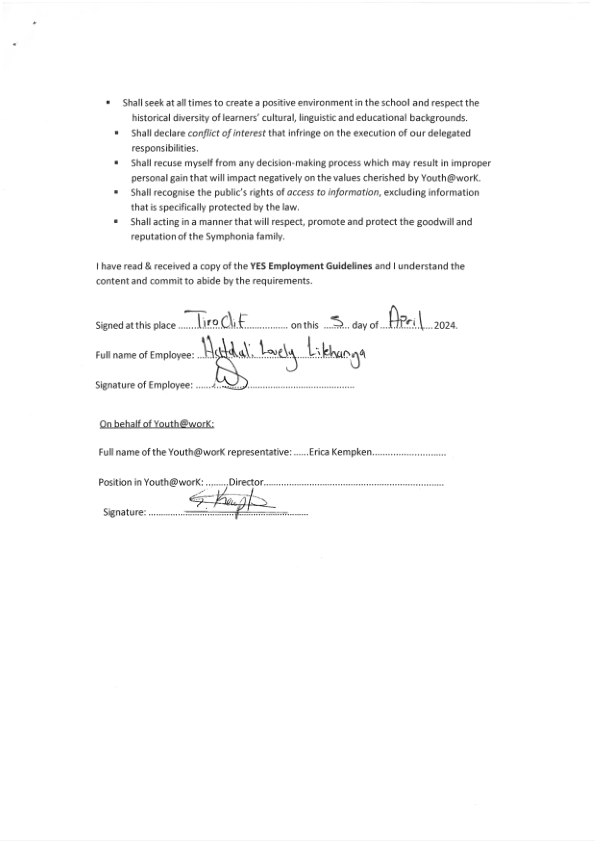 ▪ Shall seek at all times to create a positive environment in the school and respect the
historical diversity of learners' cultural, linguistic and educational backgrounds.
▪ Shall declare conflict of interest that infringe on the execution of our delegated
responsibilities.
▪ Shall recuse myself from any decision-making process which may result in improper
personal gain that will impact negatively on the values cherished by Youth@worK.
▪ Shall recognise the public's rights of access to information, excluding information
that is specifically protected by the law.
▪ Shall acting in a manner that will respect, promote and protect the goodwill and
reputation of the Symphonia family.
I have read & received a copy of the YES Employment Guidelines and I understand the
content and commit to abide by the requirements.
Signed at this place ........ on this ........ day of April 2024.
Full name of Employee: ........ Lovely ........
Signature of Employee: ........
On behalf of Youth@worK:
Full name of the Youth@worK representative: ......Erica Kempken...........................
Position in Youth@worK: .........Director.................................................................
Signature: ........................................................